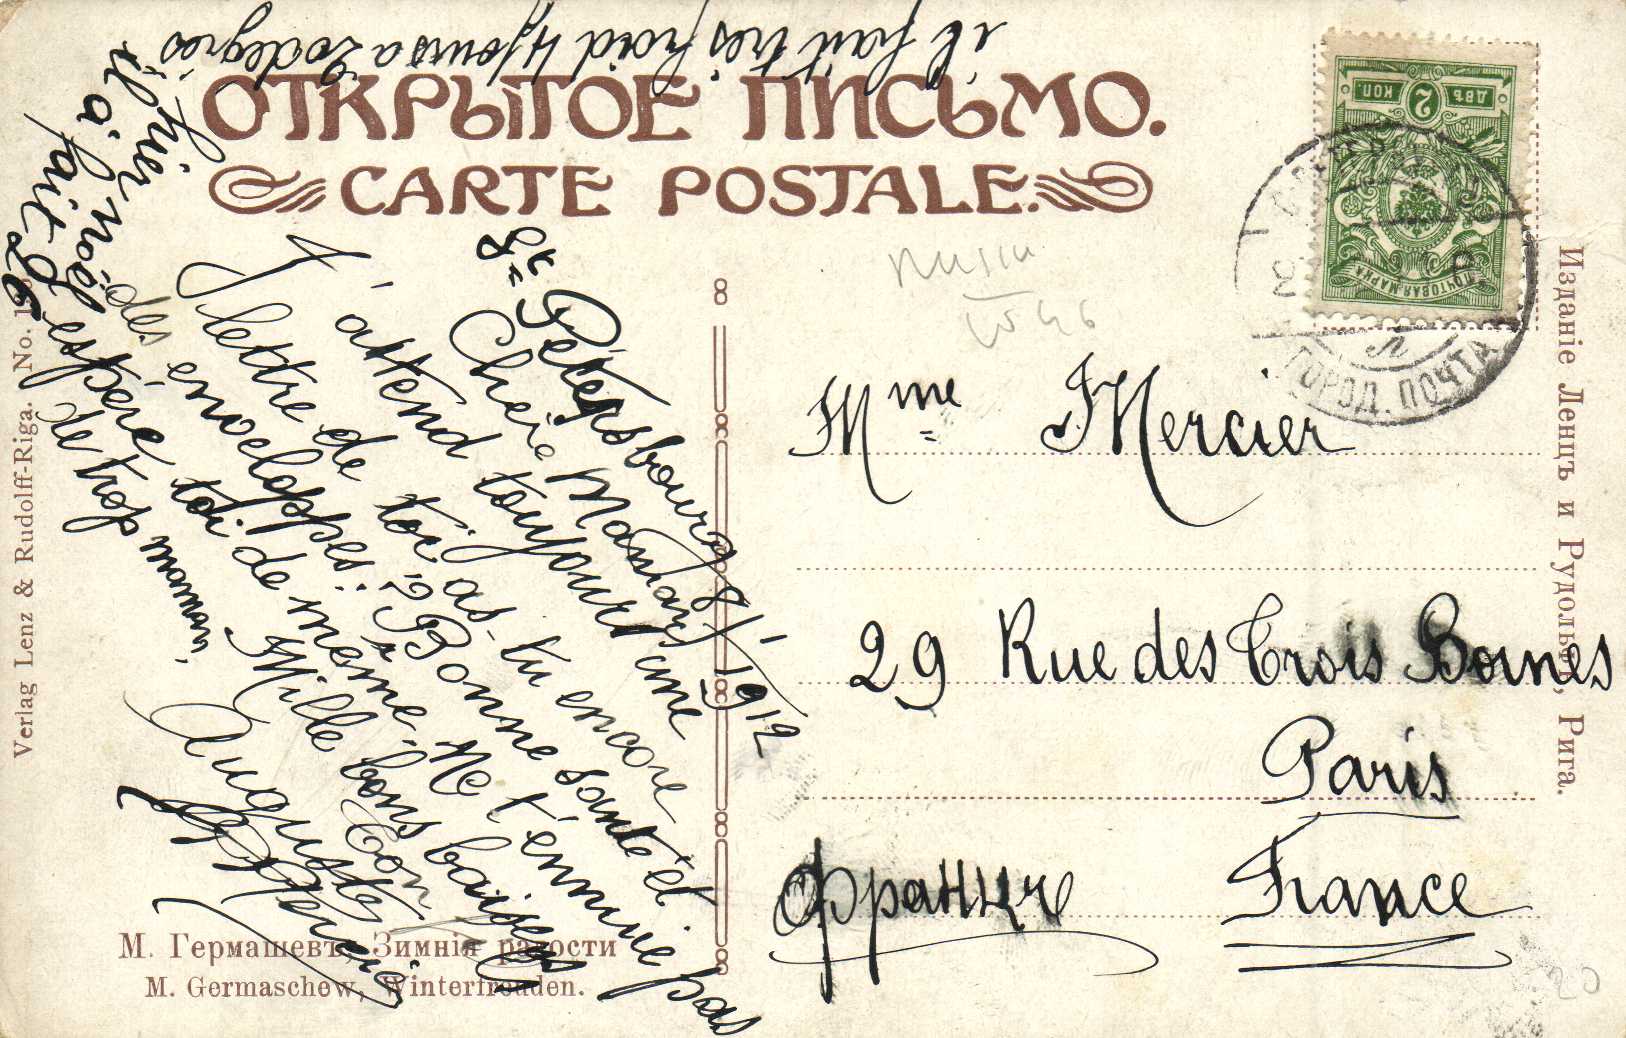 il fait tres froid 4 jours a 20 degres
ОТКРЫТОЕ ПИСЬМО.
CARTE POSTALE.
ДВѢ 2 КОП.
ПОЧТОВАЯ МАРКА
ГОРОД. ПОЧТА
Л
Russia
Sᵗ Pétersbourg 8/1/1912
Cheie Maman
J'attend toujours une
lettre de toi, as-tu encore
des enveloppes? Bonne santé et
espère toi de meme. Ne t'ennuie pas
de trop maman.
Mille bons baisers
Ton
Auguste
Mercier
hier noël
il a fait 26
Mme Mercier
29 Rue des Trois Bornes
Paris
Франце
France
20
М. Гермашевъ, Зимнія радости
M. Germaschew, Winterfreuden.
Verlag Lenz & Rudolff-Riga. No.
Изданіе Ленцъ и Рудольфъ, Рига.